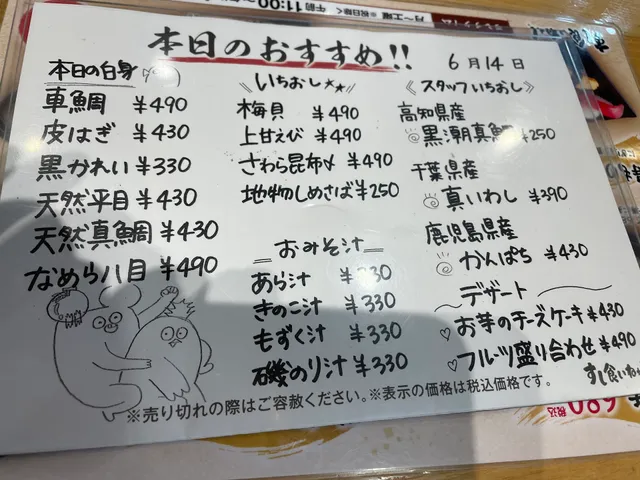 本日のおすすめ!!
6月14日
本日の白身
車鯛 ¥490
皮はぎ ¥430
黒かれい ¥330
天然平目 ¥430
天然真鯛 ¥430
なめら八目 ¥490
いちおし★★
梅貝 ¥490
上甘えび ¥490
さわら昆布〆 ¥490
地物しめさば ¥250
おみそ汁
あら汁 ¥330
きのこ汁 ¥330
もずく汁 ¥330
磯のり汁 ¥330
《スタッフいちおし》
高知県産
黒潮真鯛 ¥250
千葉県産
真いわし ¥390
鹿児島県産
かんぱち ¥430
デザート
♡お芋のチーズケーキ ¥430
♡フルーツ盛り合わせ ¥490
※売り切れの際はご容赦ください。※表示の価格は税込価格です。
月〜土曜 ※祝日除く 午前11:00〜
680 税込